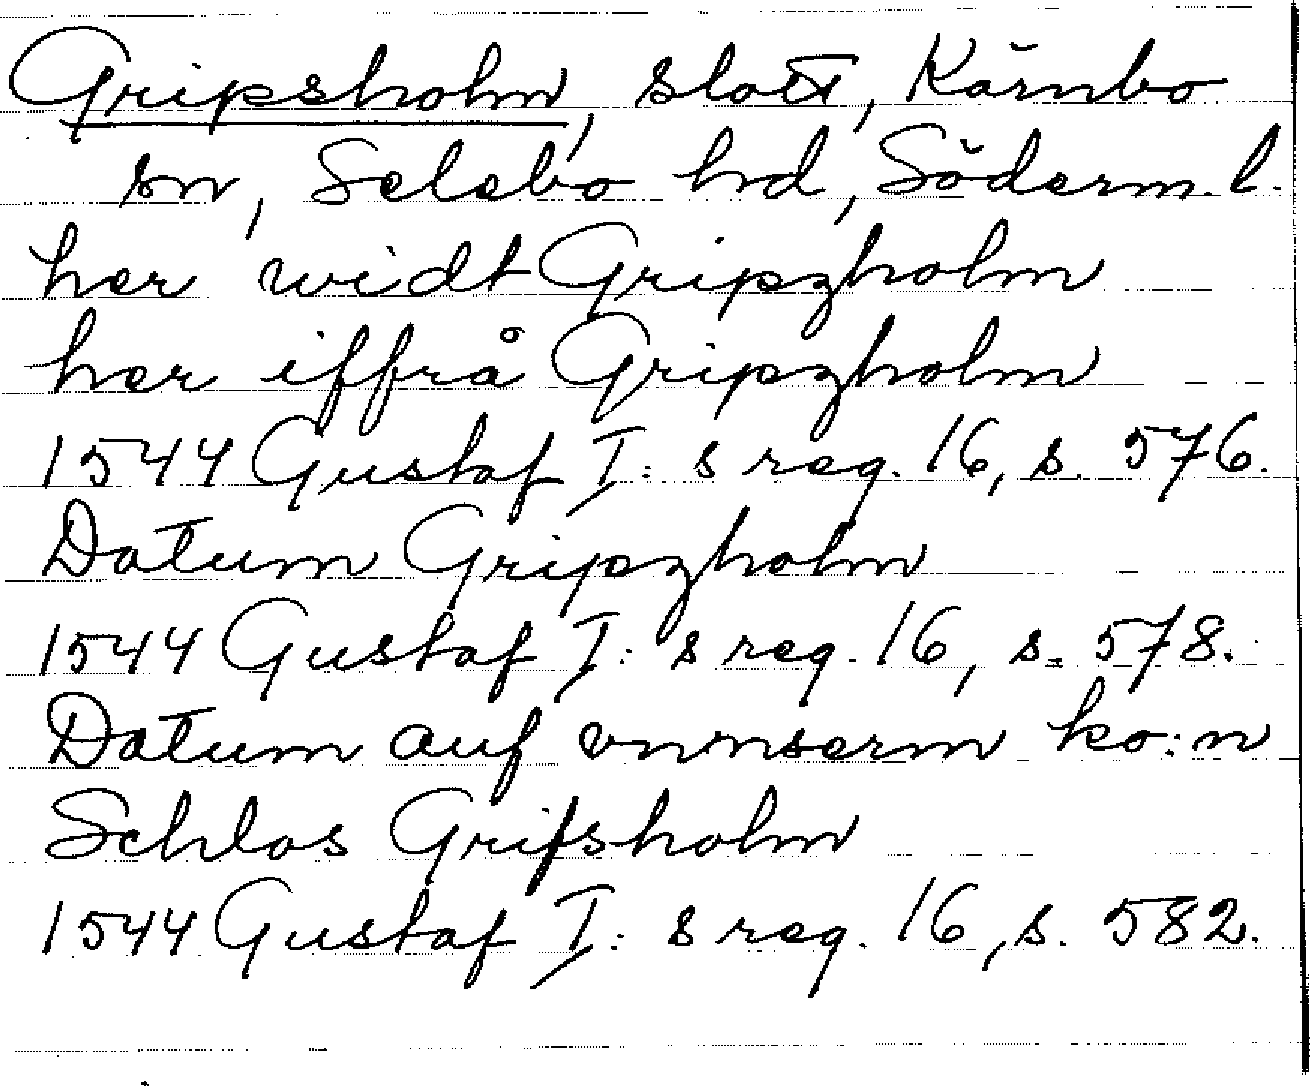 Gripsholm, slott, Kärnbo
sn, Selebo hd, Söderm. l.
her widt Gripzholm
her iffrå Gripzholm
1544 Gustaf I:s reg. 16, s. 576.
Datum Gripzholm
1544 Gustaf I:s reg. 16, s. 578.
Datum auf vnnserm ko:n
Schlos Grifsholm
1544 Gustaf I:s reg. 16, s. 582.